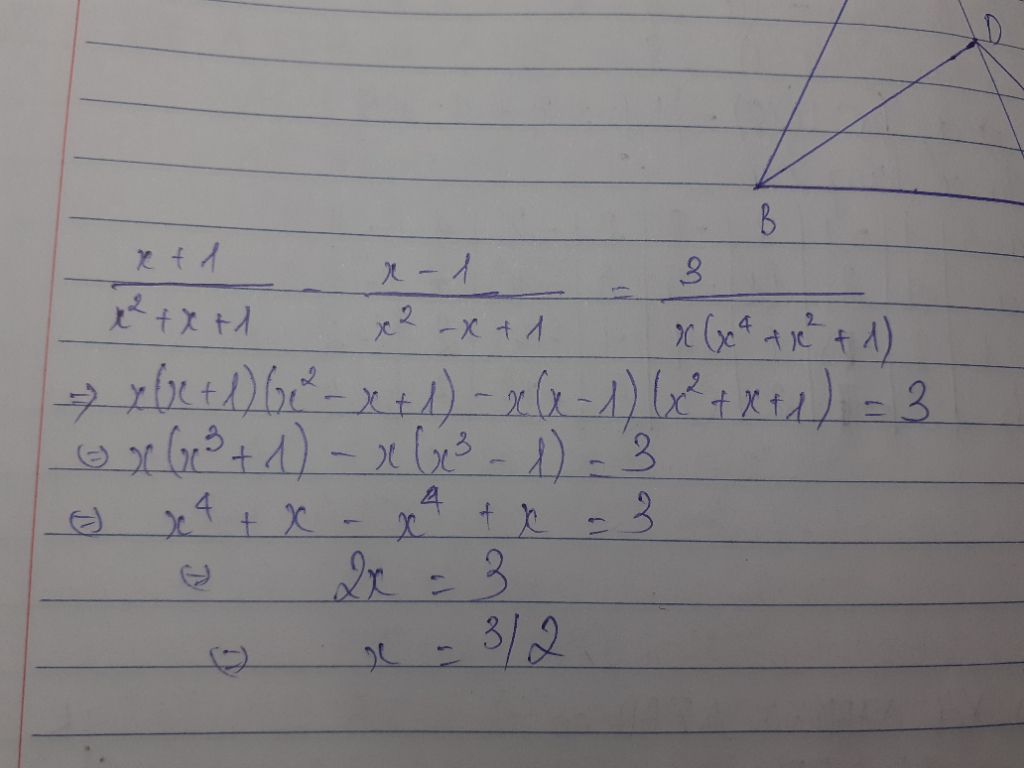 D
B
x + 1 / x² + x + 1 - x - 1 / x² - x + 1 = 3 / x(x⁴ + x² + 1)
⇒ x(x+1)(x² - x + 1) - x(x-1)(x² + x + 1) = 3
⇔ x(x³ + 1) - x(x³ - 1) = 3
⇔ x⁴ + x - x⁴ + x = 3
⇔ 2x = 3
⇔ x = 3/2